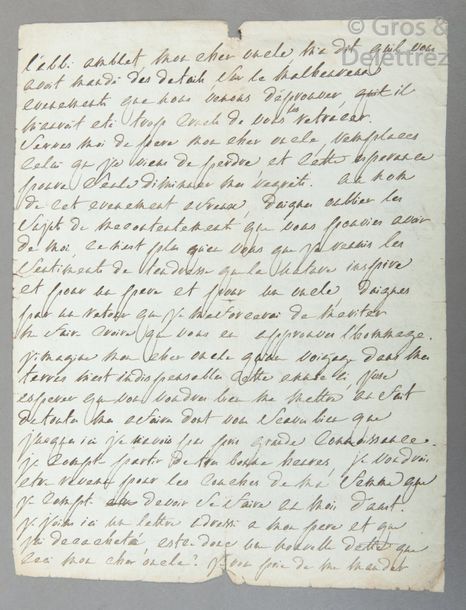 © Gros &
Delettrez
l'abbé amblet mon cher oncle m'a dit qu'il vous
avoit mandé des details sur le malheureux
evenement que nous venons d'éprouver, il
m'auroit été trop cruel de vous les retracer.
Servés moi de pere mon cher oncle remplaces
celui que je viens de perdre et cette esperance
pourra seule diminuer mes regrets. au nom
de cet evenement afreux, daignes oublier les
sujets de mecontentement que vous pouviés avoir
de moi, ce n'est plus qu'en vous que je reunis les
sentiments de tendresse que la nature inspire
et pour un pere et pour un oncle, daignes
par un retour que je m'efforcerai de meriter
me faire croire que vous en approuves l'hommage.
j'imagine mon cher oncle qu'un voiyage dans mes
terres m'est indispensable cette année ci, j'ose
esperer que vous voudres bien me mettre au fait
de toutes mes afaires dont vous scaves bien que
jusqu'ici je n'avois pas pris grande connoissance.
je compte partir de tres bonne heure, je voudrois
etre revenu pour les couches de ma femme que
je compte devoir se faire au mois d'aout.
je joins ici une lettre adressé a mon pere et que
j'ai decacheté, est-ce donc une nouvelle dette que
ceci mon cher oncle? je vous prie de me mander